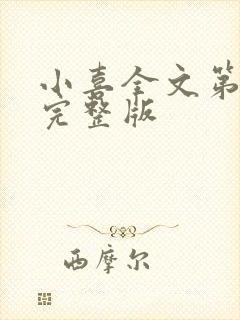 小喜全文第
完整版
西摩尔